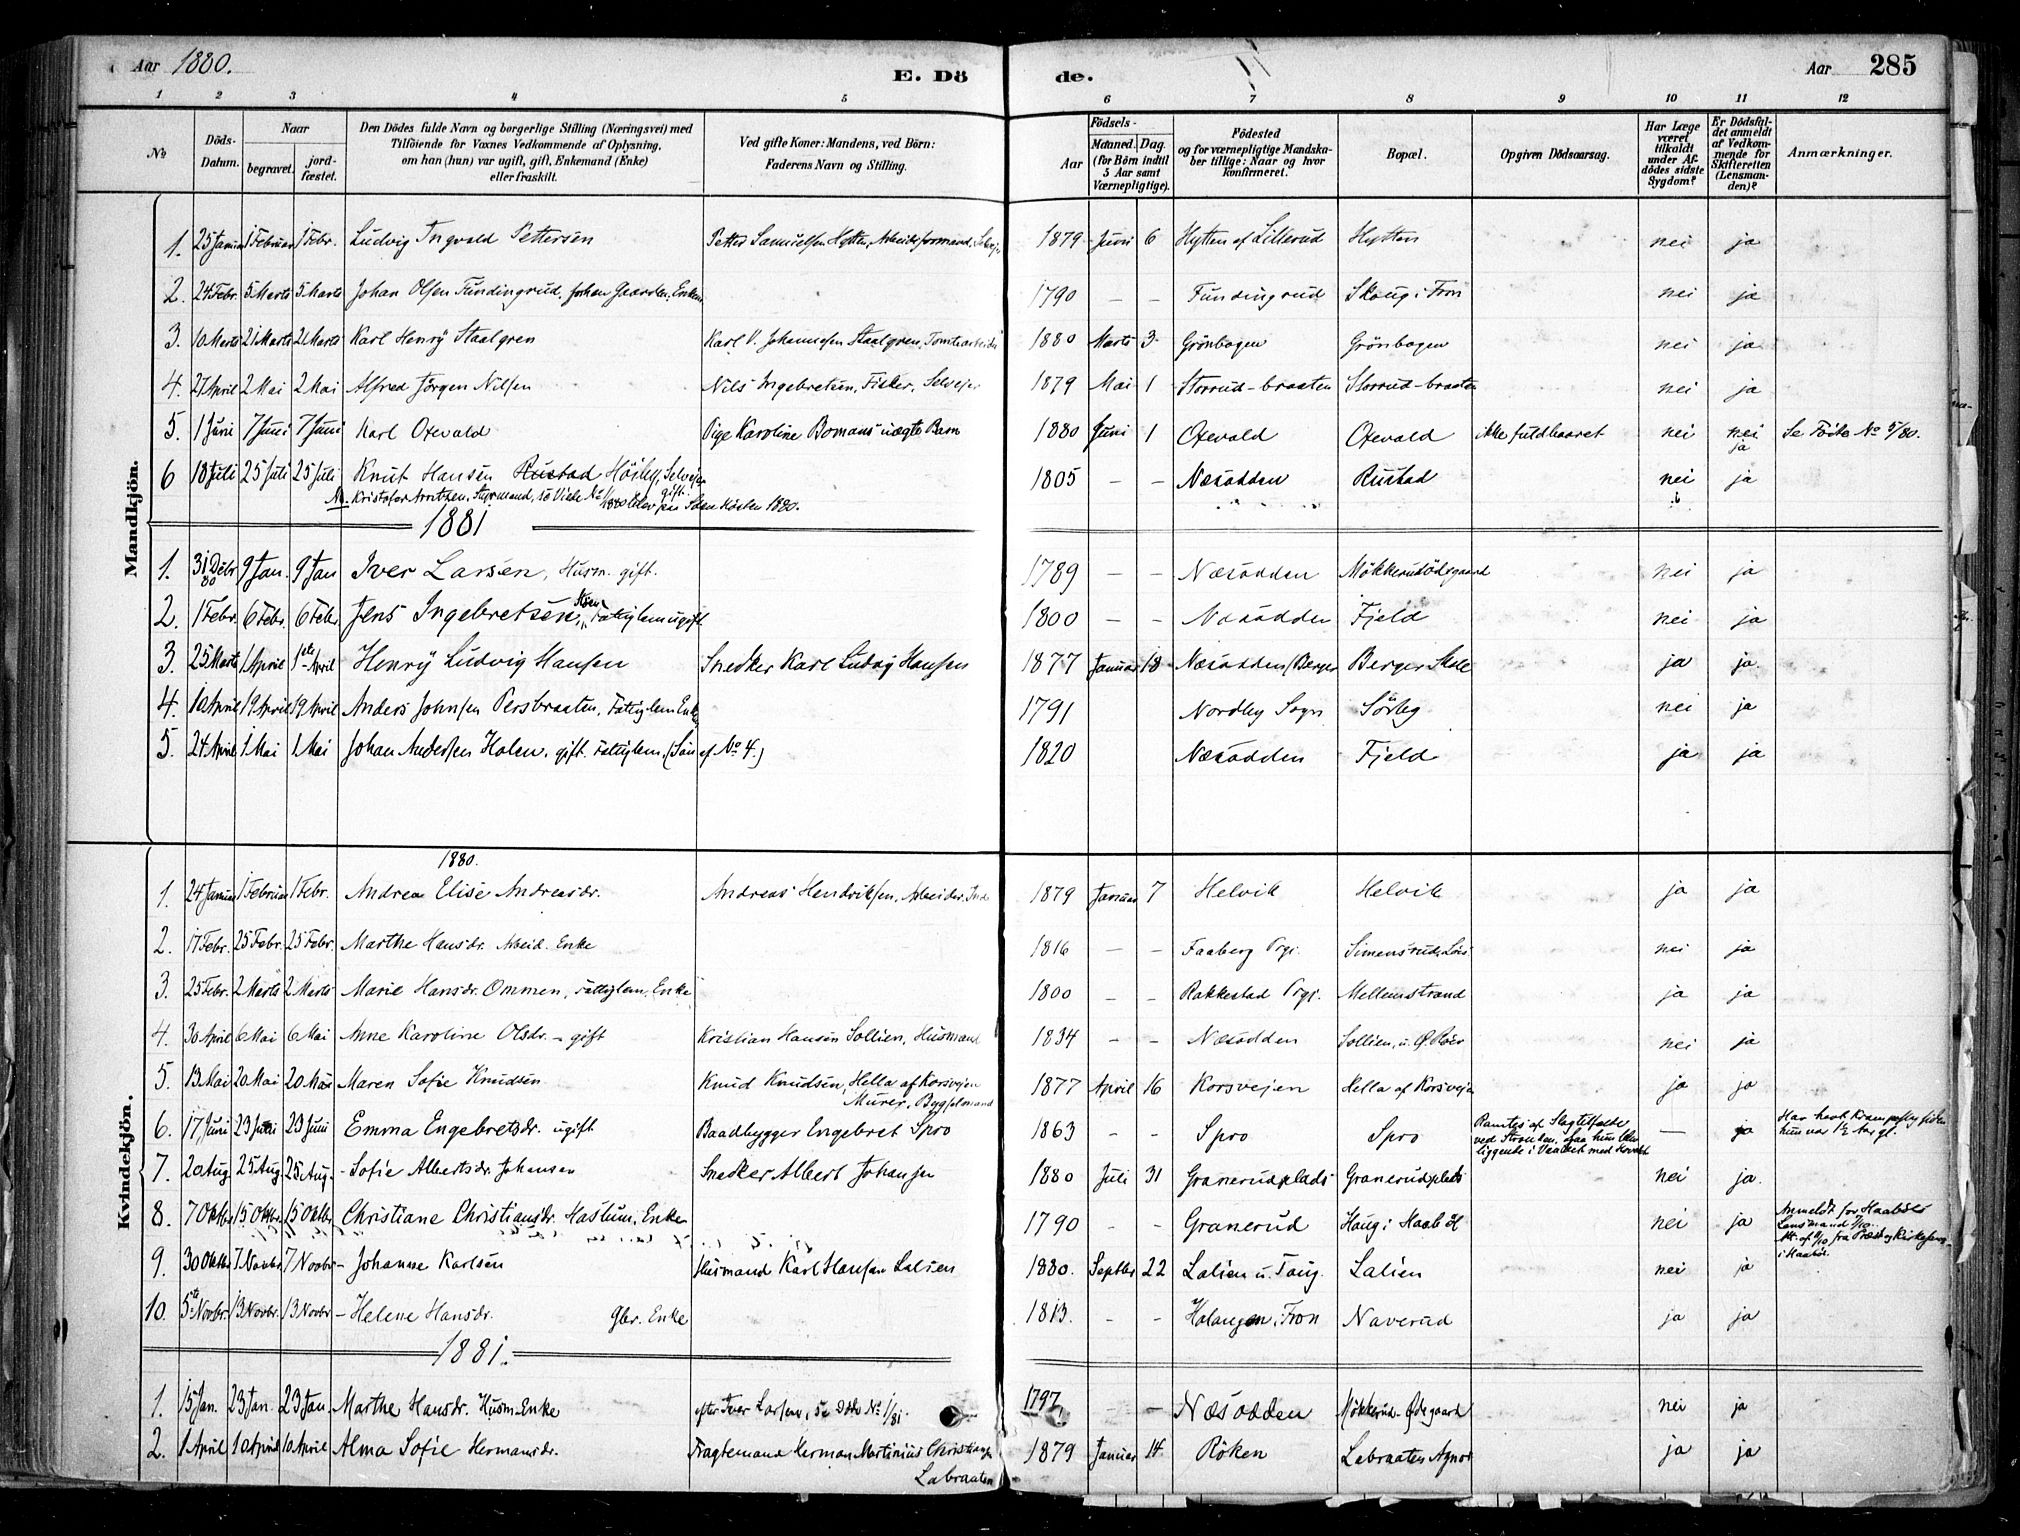 Aar 1880. E. Dö de. Aar 285
1 2 3 4 5 6 7 8 9 10 11 12
No Döds-Datum. Naar begravet. jordfæstet. Den Dödes fulde Navn og borgerlige Stilling (Næringsvei) med Tilföiende for Voxnes Vedkommende af Oplysning, om han (hun) var ugift, gift, Enkemand (Enke) eller fraskilt. Ved gifte Koner: Mandens, ved Börn: Faderens Navn og Stilling. Födsels- Aar Maaned. Dag. (for Börn indtil 5 Aar samt Værnepligtige). Födested og for værnepligtige Mandskaber tillige: Naar og hvor konfirmeret. Bopæl. Opgiven Dödsaarsag. Har Læge været tilkaldt under Afdödes sidste Sygdom? Er Dödsfaldet anmeldt af Vedkommende for Skifteretten (Lensmanden)? Anmærkninger.
Mandkjön.
1. 25 Januar 1 Februar 1 Febr. Ludvig Ingvald Pettersen Petter Samuelsen Hytten, Arbeidsformand, Selvejer 1879 Juni 6 Hytten af Lillerud Hytten nei ja
2. 24 Febr. 5 Marts 5 Marts Johan Olsen Fundingrud, Enkem. 1790 – – Fundingrud Skoug i Fron nei ja
3. 10 Marts 21 Marts 21 Marts Karl Henrÿ Staalgren Karl V. Johannesen Staalgren, Tomtearbeider 1880 Marts 3 Grönbogen Grönbogen nei ja
4. 27 April 2 Mai 2 Mai Alfred Jörgen Nilsen Nils Ingebretsen, Fisker, Selvejer 1879 Mai 1 Storrud-braaten Storrud-braaten nei ja
5. 1 Juni 7 Juni 7 Juni Karl Oxevald Pige Karoline Bomans uægte Barn 1880 Juni 1 Oxevald Oxevald ikke fuldbaaret nei nei ja Se Födte No 5/80.
6 18 Juli 25 Juli 25 Juli Knut Hansen Rustad Höiby, Selvejer gift. 1805 – – Næsodden Rustad nei ja
Kristofer Arntzen, Styrmand, 1880.
1881
1. 31 Decbr 80 9 Jan. 9 Jan Iver Larsen, Husm. gift. 1789 – – Næsodden Mökkerudödegaard nei ja
2. 1 Febr. 6 Febr. 6 Febr. Jens Ingebretsen, Fattiglem ugift 1800 – – Næsodden Fjeld nei ja
3. 25 Marts 1 April 1ste April Henrÿ Ludvig Hansen Snedker Karl Ludvig Hansen 1877 Januar 18 Næsodden/Berger Berger Skole ja ja.
4. 10 April 19 April 19 April Anders Johnsen Persbraaten, Fattiglem Enkem. 1791 Nordby Sogn Sörby nei ja
5. 24 April 1 Mai 1 Mai Johan Andersen Holen, gift. Fattiglem, (Sön af No 4.) 1820 Næsodden Fjeld ja ja
Kvindekjön.
1880.
1. 24 Januar 1 Februar 1 Febr. Andrea Elise Andreasdr. Andreas Hendriksen, Arbeider, Ind. 1879 Januar 7 Helvik Helvik ja ja
2. 17 Febr. 25 Febr. 25 Febr. Marthe Hansdr. Arbeid. Enke 1816 – – Faaberg Prgj. Simensrud, nei ja
3. 25 Febr. 2 Marts 2 Marts Marie Hansdr. Ommen, Fattiglem, Enke 1800 – – Rakkestad Prgj. Mellemstrand ja ja
4. 30 April 6 Mai 6 Mai Anne Karoline Olsdr. – gift Kristian Hansen Sollien, Husmand 1834 – – Næsodden Sollien, u. Ø. Röer nei ja
5. 13 Mai 20 Mai 20 Mai Maren Sofie Knudsen Knud Knudsen, Hella af Korsvejen Murer, Bygselmand 1877 April 16 Korsvejen Hella af Korsvejen ja ja
6. 17 Juni 23 Juni 23 Juni Emma Engebretsdr. ugift Baadbygger Engebret Spro 1863 – – Spro Spro Ramtes af Slagtilfælde ved Stranden, saa hun blev liggende i Vandet med Hovedet — ja Har havt Krampe fra siden hun var 1½ Aar gl.
7. 20 Aug 25 Aug 25 Aug. – Sofie Albertsdr. Johansen Snedker Albert Johansen 1880 Juli 31 Granerudplads Granerudplads nei ja.
8. 7 Oktbr 15 Oktbr. 15 Oktbr Christiane Christiansdr. Haslum, Enke 1790 – Granerud Haug i Haaböl nei ja Anmeldt for Haaböls Lensmand
9. 30 Oktbr 7 Novbr 7 Novbr – Johanne Karlsen Husmand Karl Hansen Lalien 1880. Septbr 22 Lalien u. Toug. Lalien nei ja
10. 5te Novbr. 13 Novbr. 13 Novbr – Helene Hansdr. Gbr. Enke 1813. – – Holangen i Fron Naverud ja ja
1881.
1. 15 Jan. 23 Jan. 23 Jan. Marthe Hansdr. Husm. Enke efter Iver Larsen, se Döde No 1/81. 1797 – – Næsodden Mökkerud-Ødegaard nei ja
2. 1 April 10 April 10 April Alma Sofie Hermansdr. Fragtemand Herman Martinius Christiansen Labraaten 1879 Januar 14 Röken Labraaten Agnor ja ja